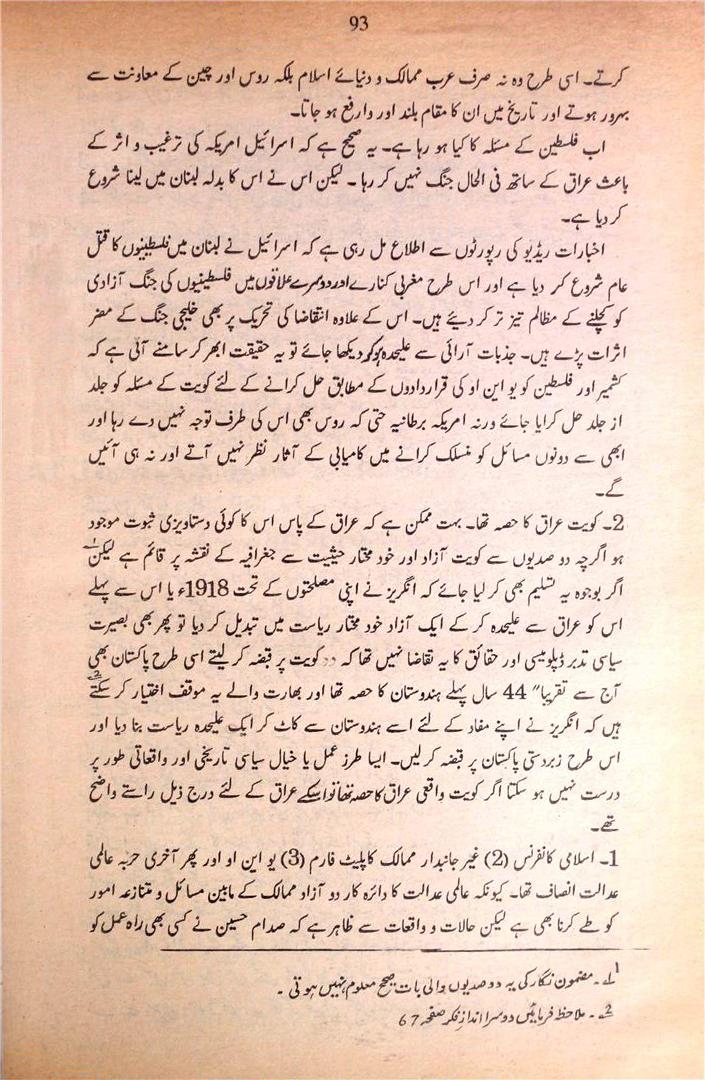 93
کرتے۔ اسی طرح وہ نہ صرف عرب ممالک و دنیائے اسلام بلکہ روس اور چین کے معاونت سے
بہرور ہوتے اور تاریخ میں ان کا مقام بلند اور وارفع ہو جاتا۔
اب فلسطین کے مسئلہ کا کیا ہو رہا ہے۔ یہ صحیح ہے کہ اسرائیل امریکہ کی ترغیب و اثر کے
باعث عراق کے ساتھ فی الحال جنگ نہیں کر رہا ۔ لیکن اس نے اس کا بدلہ لبنان میں لینا شروع
کر دیا ہے۔
اخبارات ریڈیو کی رپورٹوں سے اطلاع مل رہی ہے کہ اسرائیل نے لبنان میں فلسطینیوں کا قتل
عام شروع کر دیا ہے اور اس طرح مغربی کنارے اور دوسرے علاقوں میں فلسطینیوں کی جنگ آزادی
کو کچلنے کے مظالم تیز تر کر دیئے ہیں۔ اس کے علاوہ انتقاضا کی تحریک پر بھی خلیجی جنگ کے مضر
اثرات پڑے ہیں۔ جذبات آرائی سے علیحدہ ہو کر دیکھا جائے تو یہ حقیقت ابھر کر سامنے آتی ہے کہ
کشمیر اور فلسطین کو یو این او کی قراردادوں کے مطابق حل کرانے کے لئے کویت کے مسئلہ کو جلد
از جلد حل کرایا جائے ورنہ امریکہ برطانیہ حتی کہ روس بھی اس کی طرف توجہ نہیں دے رہا اور
ابھی سے دونوں مسائل کو منسلک کرانے میں کامیابی کے آثار نظر نہیں آتے اور نہ ہی آئیں
گے۔
2۔ کویت عراق کا حصہ تھا۔ بہت ممکن ہے کہ عراق کے پاس اس کا کوئی دستاویزی ثبوت موجود
ہو اگرچہ دو صدیوں سے کویت آزاد اور خود مختار حیثیت سے جغرافیہ کے نقشہ پر قائم ہے لیکن 1
اگر بوجوہ یہ تسلیم بھی کر لیا جائے کہ انگریز نے اپنی مصلحتوں کے تحت 1918ء یا اس سے پہلے
اس کو عراق سے علیحدہ کر کے ایک آزاد خود مختار ریاست میں تبدیل کر دیا تو پھر بھی بصیرت
سیاسی تدبر ڈپلومیسی اور حقائق کا یہ تقاضا نہیں تھا کہ کویت پر قبضہ کر لیتے اسی طرح پاکستان بھی
آج سے تقریبا" 44 سال پہلے ہندوستان کا حصہ تھا اور بھارت والے یہ موقف اختیار کر سکتے 2
ہیں کہ انگریز نے اپنے مفاد کے لئے اسے ہندوستان سے کاٹ کر ایک علیحدہ ریاست بنا دیا اور
اس طرح زبردستی پاکستان پر قبضہ کر لیں۔ ایسا طرز عمل یا خیال سیاسی تاریخی اور واقعاتی طور پر
درست نہیں ہو سکتا اگر کویت واقعی عراق کا حصہ تھا تو اسکے عراق کے لئے درج ذیل راستے واضح
تھے۔
1۔ اسلامی کانفرنس (2) غیر جانبدار ممالک کا پلیٹ فارم (3) یو این او اور پھر آخری حربہ عالمی
عدالت انصاف تھا۔ کیونکہ عالمی عدالت کا دائرہ کار دو آزاد ممالک کے مابین مسائل و متنازعہ امور
کو طے کرنا بھی ہے لیکن حالات و واقعات سے ظاہر ہے کہ صدام حسین نے کسی بھی راہ عمل کو
1۔ مضمون نگار کی یہ دو صدیوں والی بات صحیح معلوم نہیں ہوتی ۔
2۔ ملاحظہ فرمائیں دوسرا انداز فکر صفحہ 67